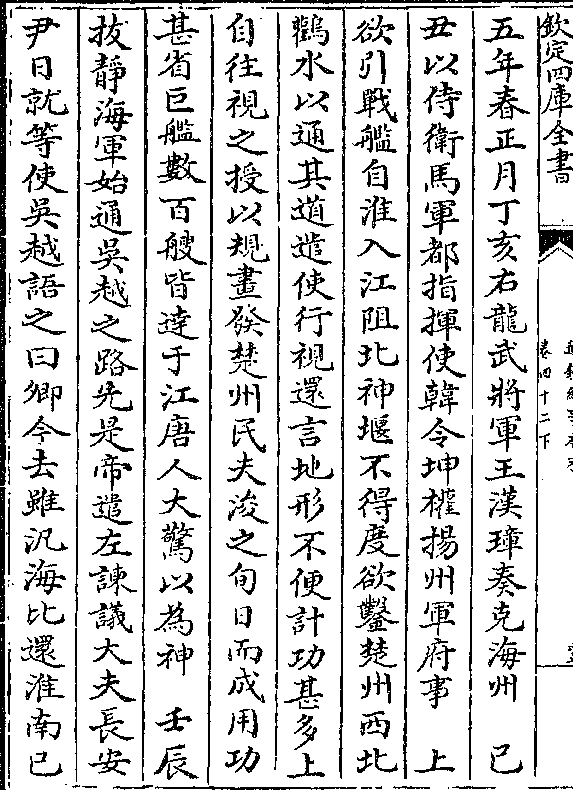 欽定四庫全書
卷四十二下
五年春正月丁亥右龍武將軍王漢璋奏克海州　已
丑以侍衛馬軍都指揮使韓令坤權揚州軍府事　上
欲引戰艦自淮入江阻北神堰不得度欲鑿楚州西北
鸛水以通其道遣使行視還言地形不便計功甚多上
自往視之授以規畫發楚州民夫浚之旬日而成用功
甚省巨艦數百艘皆達于江唐人大驚以為神　壬辰
拔靜海軍始通吳越之路先是帝遣左諫議大夫長安
尹日就等使吳越語之曰卿今去雖汎海比還淮南已